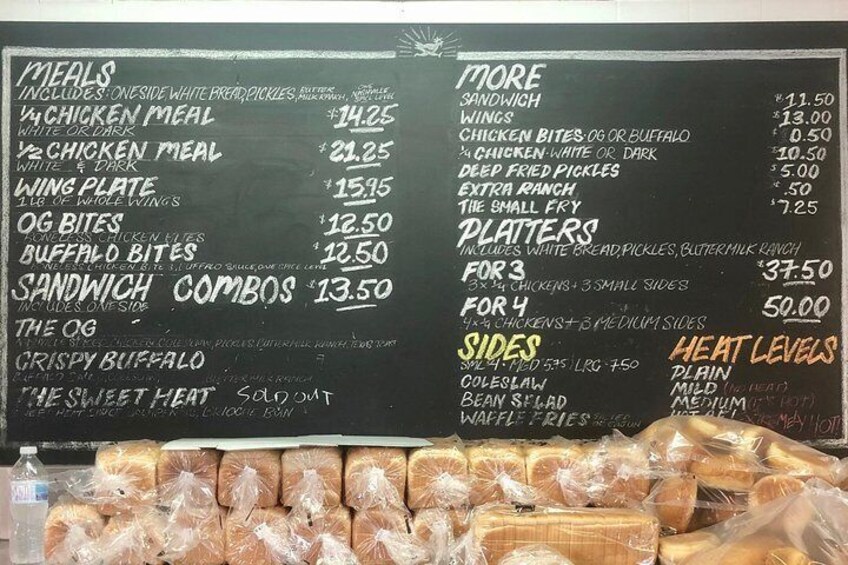 MEALS
INCLUDES: ONE SIDE, WHITE BREAD, PICKLES, BUTTER MILK RANCH,
1/4 CHICKEN MEAL $14.25
WHITE OR DARK
1/2 CHICKEN MEAL $21.25
WHITE & DARK
WING PLATE $15.95
1 LB OF WHOLE WINGS
OG BITES $12.50
BONELESS CHICKEN BITES
BUFFALO BITES $12.50
BONELESS CHICKEN BITES, BUFFALO SAUCE, ONE SPICE LEVEL
SANDWICH COMBOS $13.50
INCLUDES ONE SIDE
THE OG
COLESLAW, PICKLES, BUTTERMILK RANCH, TEXAS TOAST
CRISPY BUFFALO
BUTTERMILK RANCH
THE SWEET HEAT SOLD OUT
BRIOCHE BUN
MORE
SANDWICH $11.50
WINGS $13.00
CHICKEN BITES · OG OR BUFFALO 0.50
1/4 CHICKEN · WHITE OR DARK 10.50
DEEP FRIED PICKLES $5.00
EXTRA RANCH $.50
THE SMALL FRY $7.25
PLATTERS
INCLUDES WHITE BREAD, PICKLES, BUTTERMILK RANCH
FOR 3 $37.50
3 x 1/4 CHICKENS + 3 SMALL SIDES
FOR 4 50.00
4 x 1/4 CHICKENS + 3 MEDIUM SIDES
SIDES
SML 4 · MED 5.75 | LRG · 7.50
COLESLAW
BEAN SALAD
WAFFLE FRIES
HEAT LEVELS
PLAIN
MILD (NO HEAT)
MEDIUM (IT'S HOT)
EXTREMELY HOT!